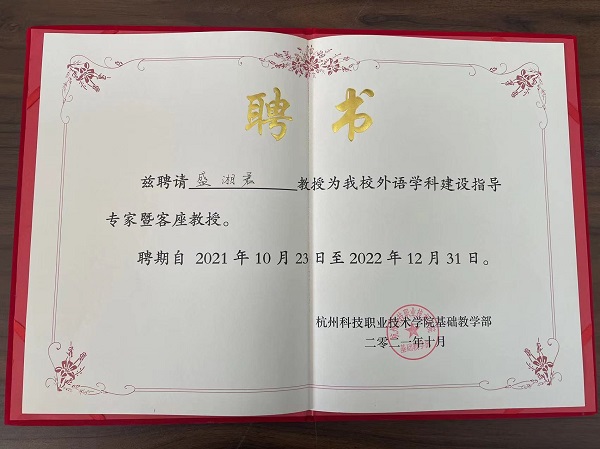 聘书
兹聘请盛湘君教授为我校外语学科建设指导
专家暨客座教授。
聘期自 2021 年 10 月 23日至 2022 年 12 月 31 日。
杭州科技职业技术学院基础教学部
二零二一年十月